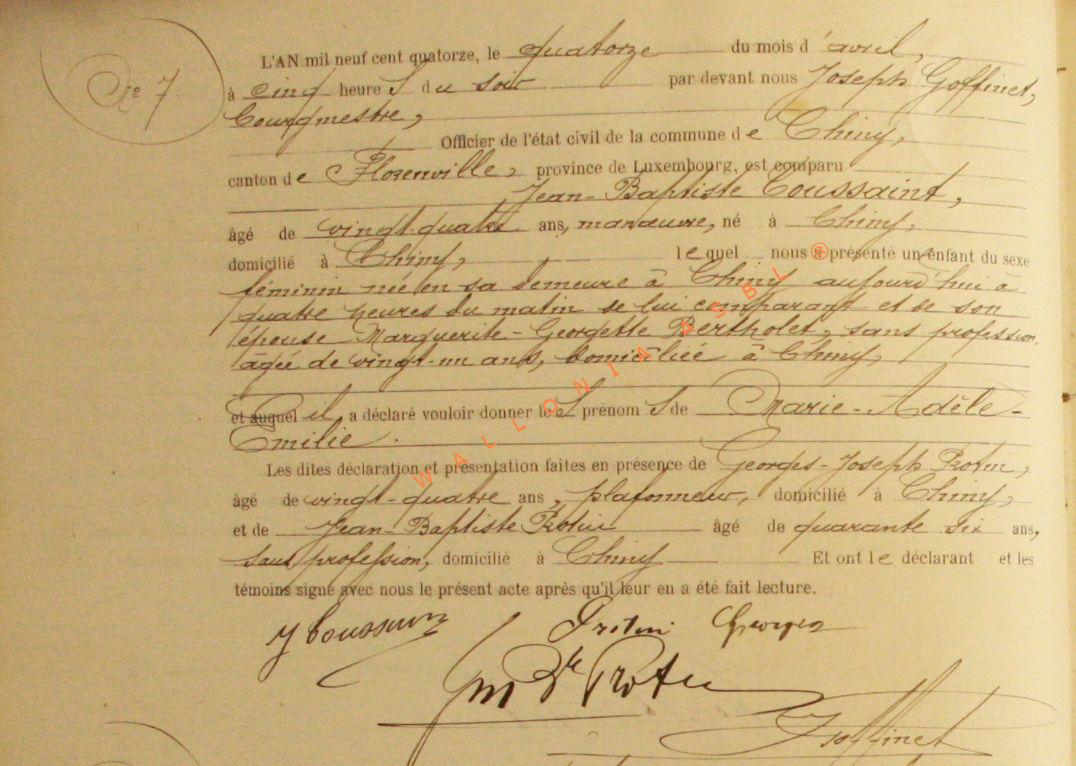 N° 7
L'AN mil neuf cent quatorze, le quatorze du mois d'avril,
à cinq heure s du soir par devant nous Joseph Goffinet,
Bourgmestre,
Officier de l'état civil de la commune de Chiny,
canton de Florenville, province de Luxembourg, est comparu
Jean-Baptiste Toussaint,
âgé de vingt-quatre ans, manœuvre, né à Chiny,
domicilié à Chiny, lequel nous a présenté un enfant du sexe
féminin née en sa demeure à Chiny aujourd'hui à
quatre heures du matin de lui comparant et de son
épouse Marguerite-Georgette Bertholet, sans profession,
âgée de vingt-un ans, domiciliée à Chiny,
et auquel il a déclaré vouloir donner les prénoms de Marie-Adèle-
Emilie.
Les dites déclaration et présentation faites en présence de Georges-Joseph Protin,
âgé de vingt-quatre ans, plafonneur, domicilié à Chiny,
et de Jean-Baptiste Protin âgé de quarante six ans,
sans profession, domicilié à Chiny Et ont le déclarant et les
témoins signé avec nous le présent acte après qu'il leur en a été fait lecture.
J Toussaint Protin Georges
Protin
Goffinet
WALLONIA ASBL